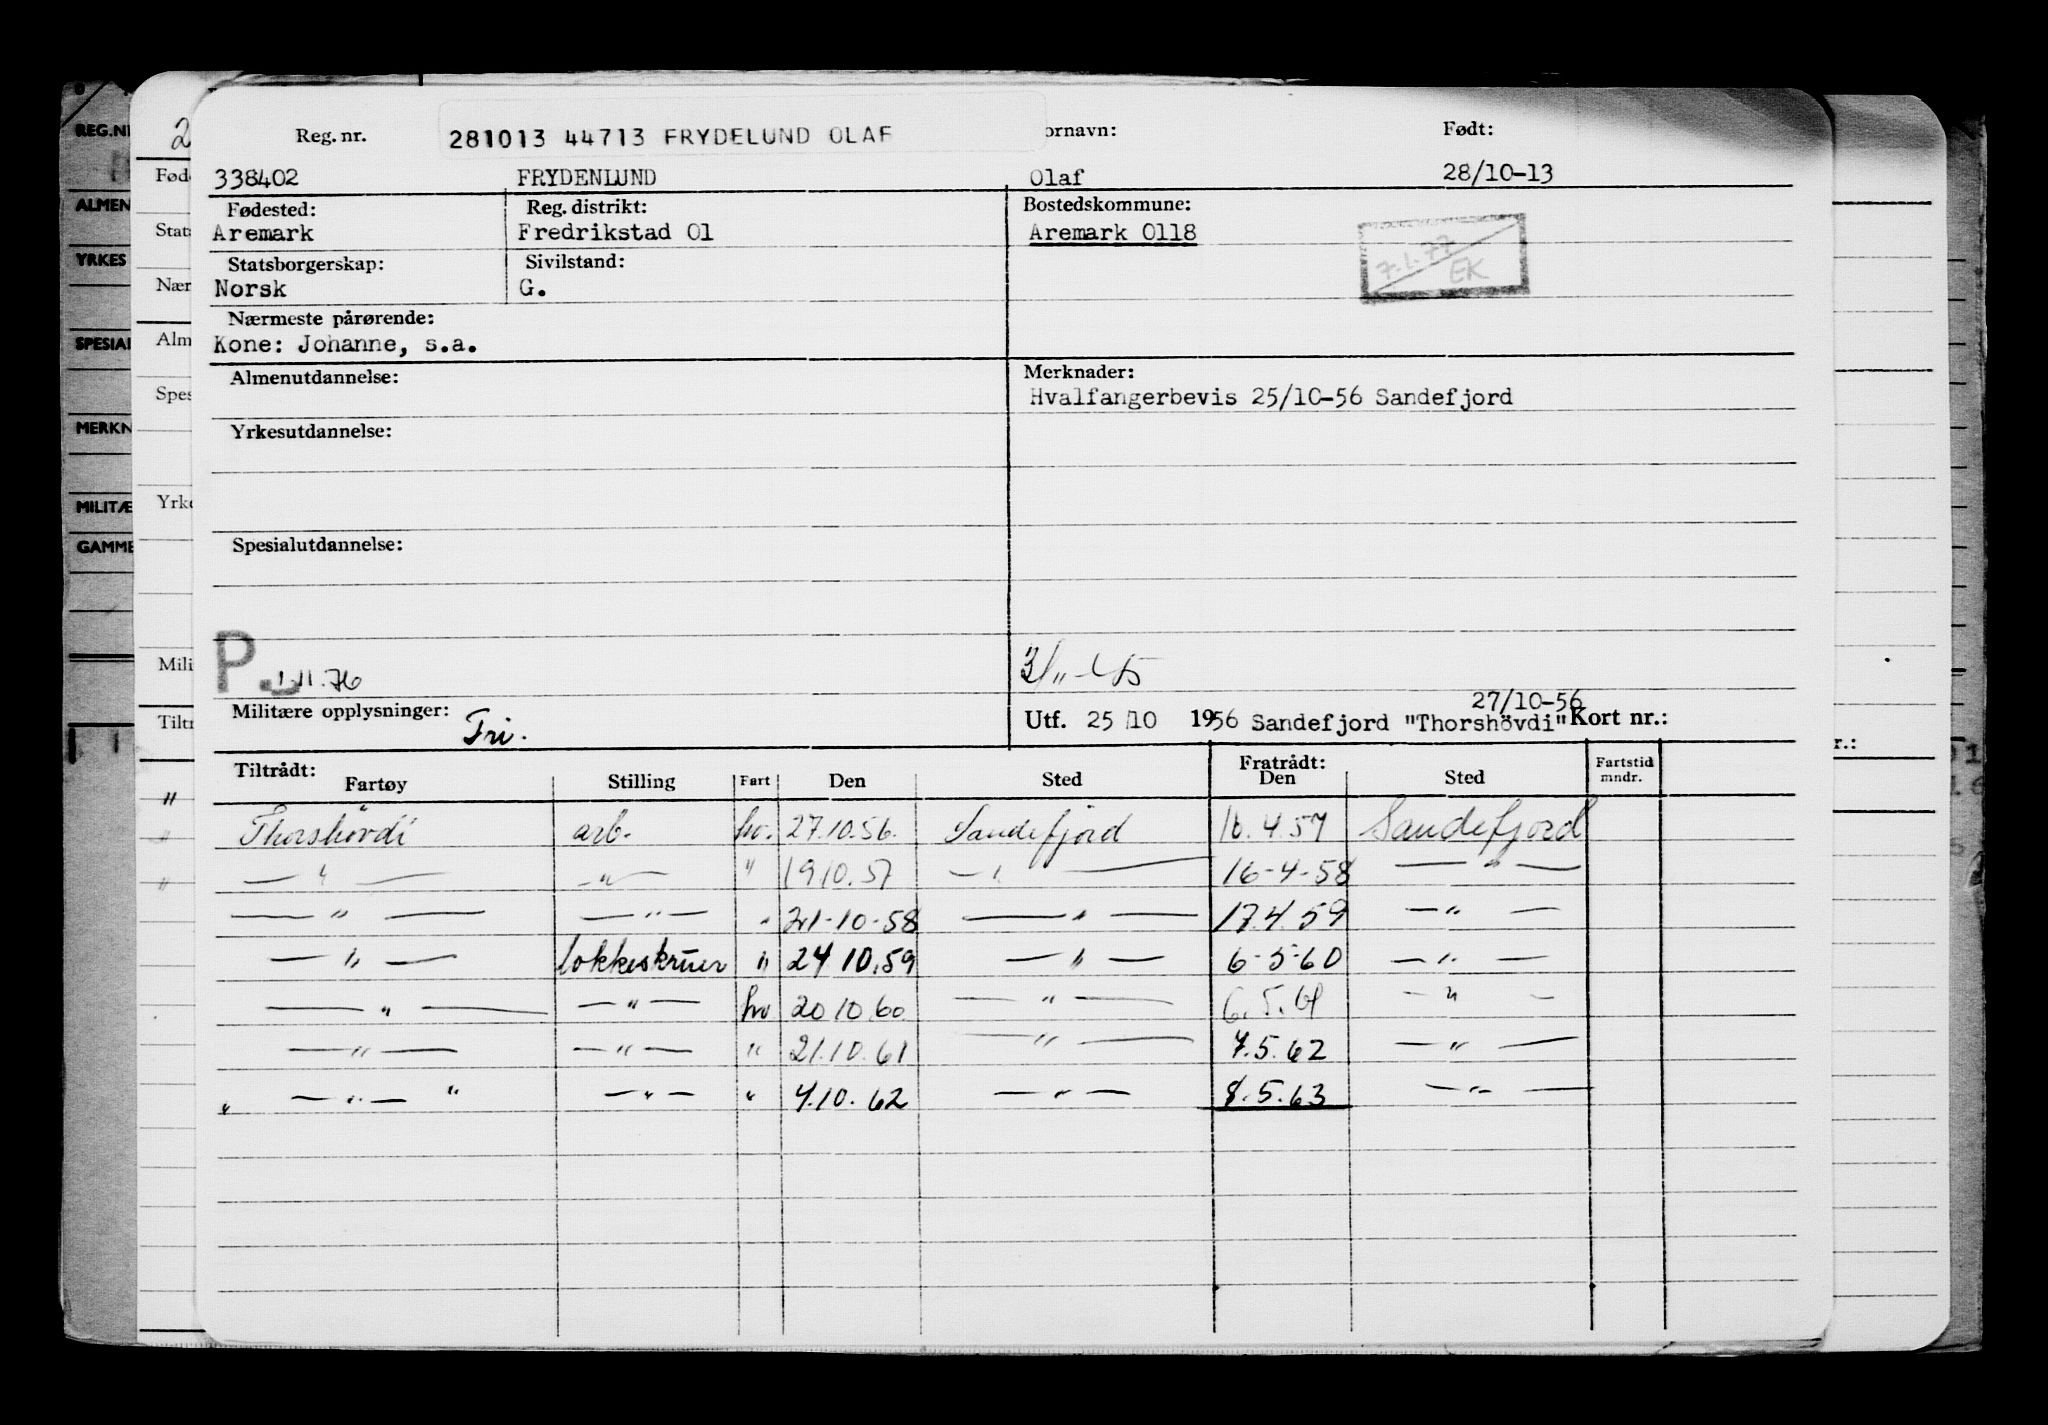 Reg. nr.
281013 44713 FRYDELUND OLAF
ornavn:
Født:
338402 FRYDENLUND Olaf 28/10-13
Fødested: Reg. distrikt: Bostedskommune:
Aremark Fredrikstad 01 Aremark 0118
7.1.77
EK
Statsborgerskap: Sivilstand:
Norsk G.
Nærmeste pårørende:
Kone: Johanne, s.a.
Almenutdannelse: Merknader:
Hvalfangerbevis 25/10-56 Sandefjord
Yrkesutdannelse:
Spesialutdannelse:
P.
1.11.76
Militære opplysninger: Fri.
27/10-56
Utf. 25/10 1956 Sandefjord "Thorshövdi" Kort nr.:
Tiltrådt: Fratrådt:
Fartøy Stilling Fart Den Sted Den Sted Fartstid mndr.
Thorshövdi arb. hv. 27.10.56. Sandefjord 16.4.57 Sandefjord
— " — — " — " 19 10.57 — " — 16-4-58 — " —
— " — — " — " 21-10-58 — " — 17.4.59 — " —
— " — lokkeskruer " 24 10.59 — " — 6-5-60 — " —
— " — — " — hv 20 10 60. — " — 6.5.61 — " —
— " — — " — " 21.10.61 — " — 7.5.62 — " —
" — " — " — " — " 4.10.62 — " — 8.5.63 — " —
REG.N
ALMEN
YRKES
SPESIAL
MERKN
MILITÆ
GAMME
2
Fød
Stats
Nær
Alm
Spes
Yrke
Mili
Tiltr
r.: